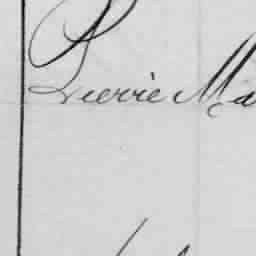 Pierre Ma